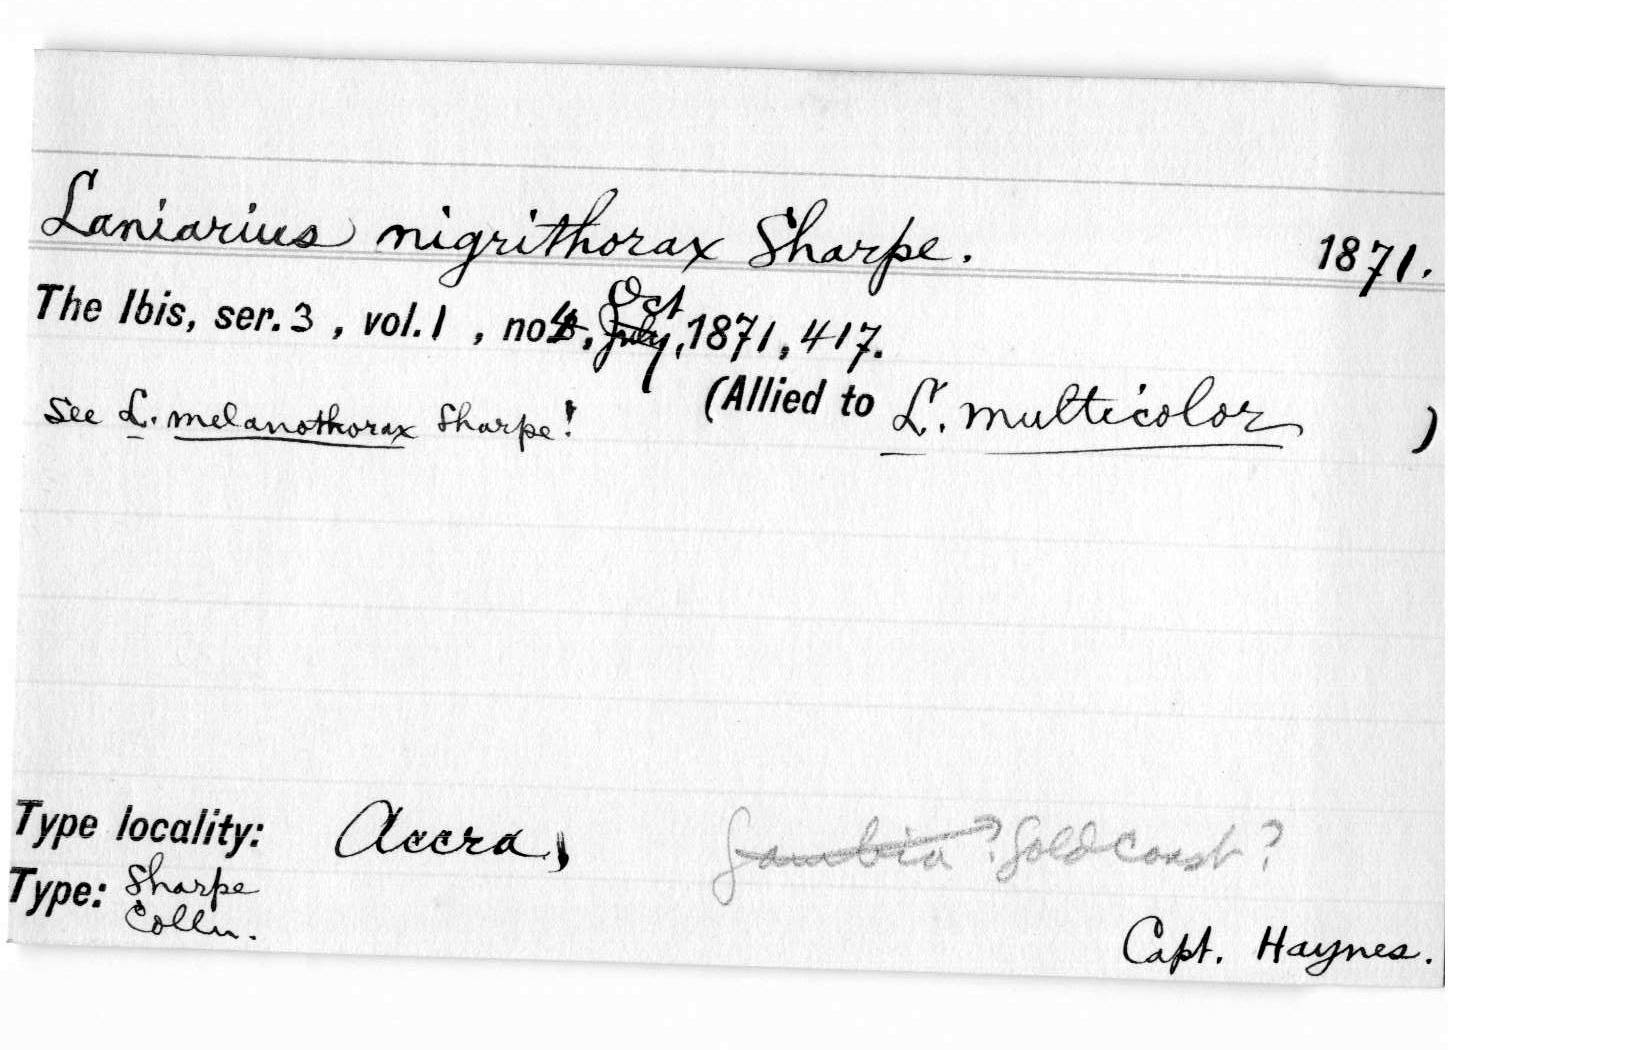 Laniarius nigrithorax Sharpe. 1871.
The Ibis, ser. 3 , vol. 1 , no. 4, Oct July, 1871, 417.
See L. melanothorax Sharpe! (Allied to L. multicolor )
Type locality: Accra, Gambia? Gold Coast?
Type: Sharpe
Colln.
Capt. Haynes.